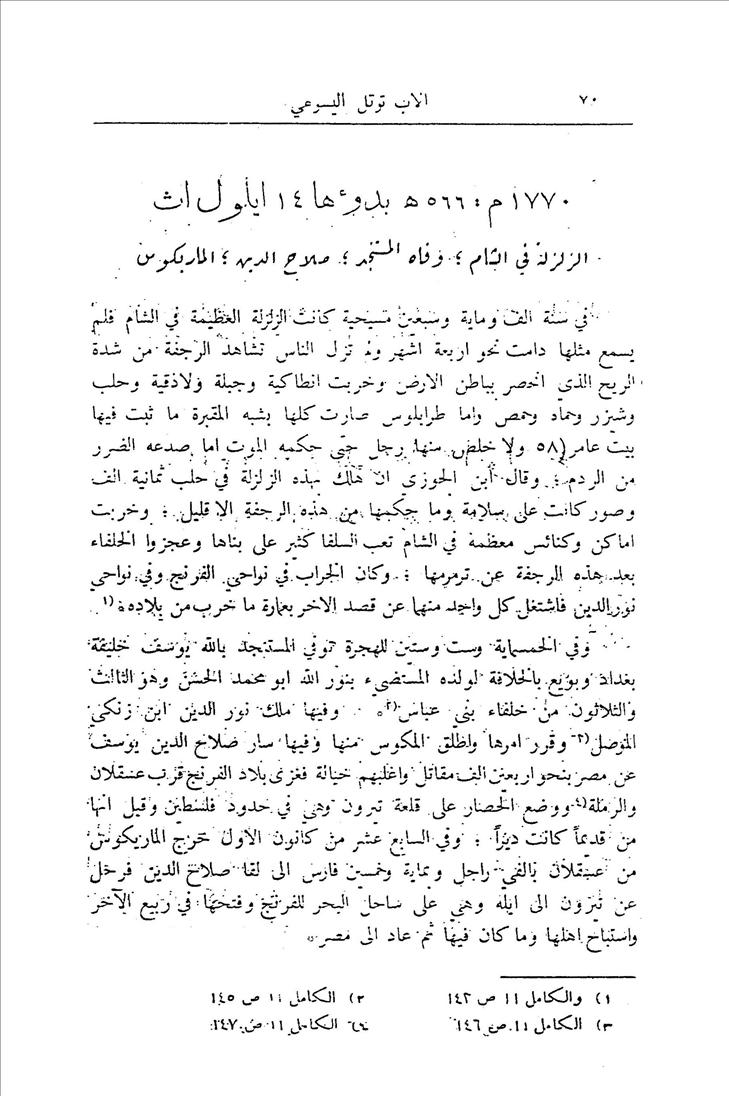 ٧٠ الاب توتل اليسوعي
١٧٧٠ م : ٥٦٦ ه بدوءها ١٤ ايلول اث
الزلزلة في الشام ؛ وفاه المستنجد ؛ صلاح الدين ؛ الماريكوس
في سنة الف وماية وسبعين مسيحية كانت الزلزلة العظيمة في الشام فلم
يسمع مثلها دامت نحو اربعة اشهر ولم تزل الناس تشاهد الرجفة من شدة
الريح الذي انحصر بباطن الارض وخربت انطاكية وجبلة ولاذقية وحلب
وشيزر وحماد وحمص واما طرابلوس صارت كلها بشبه المقبرة ما ثبت فيها
بيت عامر (٥٨ ولا خلص منها رجل حتى حكمه الموت اما صدعه الضرر
من الردم ؛ وقال ابن الجوزي ان هالك بهذه الزلزلة في حلب ثمانية الف
وصور كانت على سلامة وما حكمها من هذه الرجفة الا قليل ؛ وخربت
اماكن وكنائس معظمة في الشام تعب السلفا كثير على بناها وعجزوا الخلفاء
بعد هذه الرجفة عن ترمرمها ؛ وكان الخراب في نواحي الفرنج وفي نواحي
نور الدين فاشتغل كل واحد منهما عن قصد الاخر بعمارة ما خرب من بلاده (١
وفي الخمسماية وست وستين للهجرة توفي المستنجد بالله يوسف خليفة
بغداد وبويع بالخلافة لولده المستضيء بنور الله ابو محمد الحسن وهو الثالث
والثلاثون من خلفاء بني عباس (٢ . وفيها ملك نور الدين ابن زنكي
الموصل (٣ وقرر امرها واطلق المكوس منها وفيها سار صلاح الدين يوسف
عن مصر بنحو اربعين الف مقاتل واغلبهم خيالة فغزى بلاد الفرنج قرب عسقلان
والرملة (٤ ووضع الحصار على قلعة تبرون وهي في حدود فلسطين وقيل انها
من قديماً كانت ديراً ؛ وفي السابع عشر من كانون الاول خرج الماريكوس
من عسقلان بالفي راجل وبماية وخمسين فارس الى لقا صلاح الدين فرحل
عن تبرون الى ايله وهي على ساحل البحر للفرنج وفتحها في ربيع الآخر
واستباح اهلها وما كان فيها ثم عاد الى مصر
١) والكامل ١١ ص ١٤٢ ٢) الكامل ١١ ص ١٤٥
٣) الكامل ١١ ص ١٤٦ ٤) الكامل ١١ ص ١٤٧